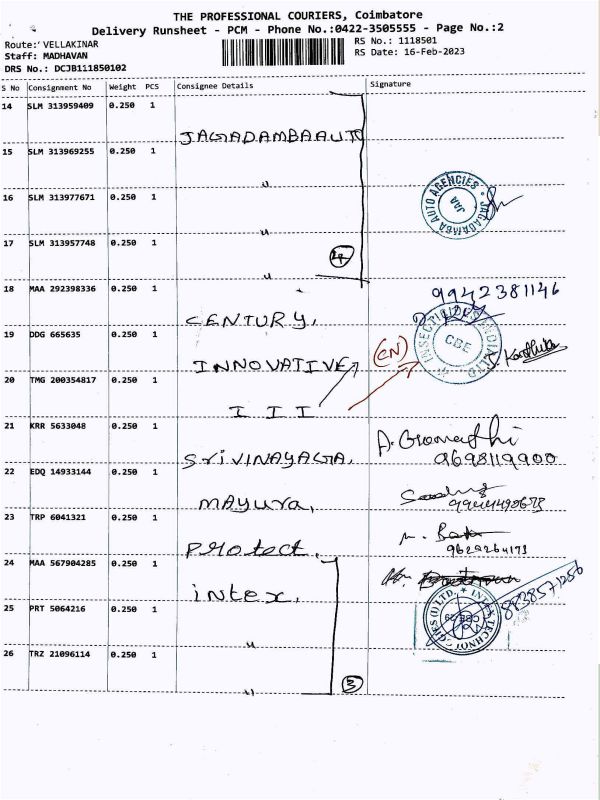 THE PROFESSIONAL COURIERS, Coimbatore
Delivery Runsheet - PCM - Phone No.:0422-3505555 - Page No.:2
Route: VELLAKINAR
RS No.: 1118501
Staff: MADHAVAN
RS Date: 16-Feb-2023
DRS No.: DCJB111850102
S No Consignment No Weight PCS Consignee Details Signature
14 SLM 313959409 0.250 1
JAGADAMBA AUTO
15 SLM 313969255 0.250 1
"
16 SLM 313977671 0.250 1
JAGADAMBA AUTO AGENCIES
JAA
"
17 SLM 313957748 0.250 1
"
18 MAA 292398336 0.250 1
9942381146
CENTURY,
19 DDG 665635 0.250 1
INSECTICIDES
LTD
CBE
(CN)
INNOVATIVE
Karthika
20 TMG 200354817 0.250 1
I I I
21 KRR 5633048 0.250 1
9698119900
SRI VINAYAGA,
22 EDQ 14933144 0.250 1
MAYURA,
23 TRP 6041321 0.250 1
9629264173
Protect,
24 MAA 567904285 0.250 1
intex,
8838571256
25 PRT 5064216 0.250 1
"
26 TRZ 21096114 0.250 1
3
"